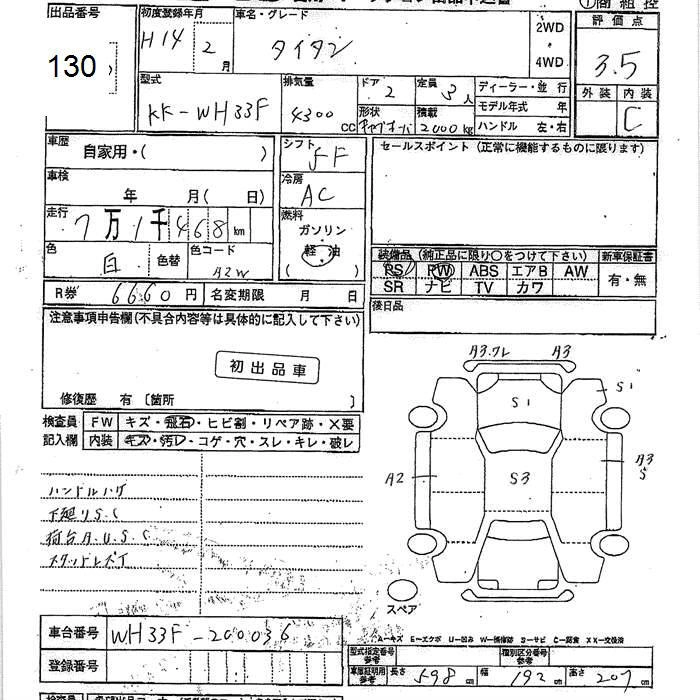 出品番号 初度登録年月 車名・グレード 2WD ・ 4WD 評価点
130 H14 2月 タイタン 3.5
型式 排気量 ドア 定員 ディーラー・並行 外装 内装
KK-WH33F 4300CC 2 3人 モデル年式 年 C
形状 積載 2000kg ハンドル 左・右
車歴 自家用・( ) シフト 5F セールスポイント (正常に機能するものに限ります)
車検 年 月( 日) 冷房 AC
走行 7万1千468km 燃料 ガソリン 軽油 ( )
色 白 色替 色コード A2W
装備品 (純正品に限り○をつけて下さい) 新車保証書
PS PW ABS エアB AW 有・無
SR ナビ TV カワ
R券 6660円 名変期限 月 日
後日品
注意事項申告欄(不具合内容等は具体的に記入して下さい)
初出品車
修復歴 有 〔箇所 〕
検査員記入欄 FW キズ・飛石・ヒビ割・リペア跡・X要
内装 キズ・汚レ・コゲ・穴・スレ・キレ・破レ
A3.クレ A3
S1 S1
A2 S3 A3 S
ハンドルハゲ
下廻りS.C
荷台A.U.S.C
スタッドレスT
スペア
A-キズ E-エクボ U-凹み W-補修跡 S-サビ C-腐食 XX-交換済
車台番号 WH33F-200036
登録番号
型式指定番号 参考 類別区分番号 参考
車庫証明用 参考 長さ 598cm 幅 192cm 高さ 207cm